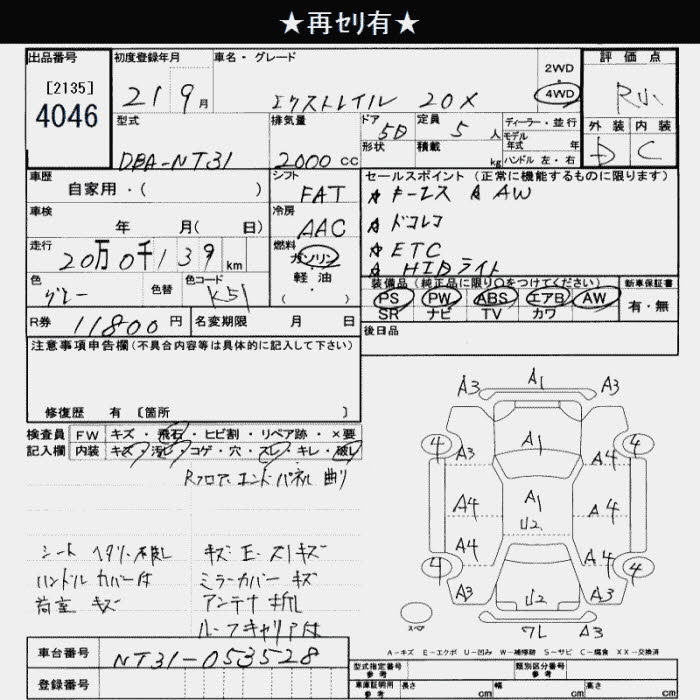 ★再ｾﾘ有★
出品番号
[2135]
4046
初度登録年月
21 9月
車名・グレード
エクストレイル 20X
2WD
4WD
評価点
R
外装 内装
D C
型式
DBA-NT31
排気量
2000 cc
ドア
5D
形状
定員
5人
積載
kg
ディーラー・並行
モデル
年式 年
ハンドル 左・右
車歴
自家用・( )
シフト
FAT
セールスポイント (正常に機能するものに限ります)
★キーレス ★AW
★ドラレコ
★ETC
★HIDライト
車検
年 月( 日)
冷房
AAC
走行
20万0千139 km
燃料
ガソリン
軽・油
( )
色
グレー
色替
色コード
K51
装備品(純正品に限り○をつけてください)
PS PW ABS エアB AW
SR ナビ TV カワ
新車保証書
有・無
R券 11800 円
名変期限 月 日
後日品
注意事項申告欄(不具合内容等は具体的に記入して下さい)
修復歴 有 [箇所 ]
検査員
記入欄
FW キズ・飛石・ヒビ割・リペア跡・×要
内装 キズ・汚レ・コゲ・穴・スレ・キレ・破レ
Rフロア エンドパネル 曲り
シート ヘタリ・破レ
キズ・E・スリキズ
ハンドルカバー付
ミラーカバー キズ
荷室 キズ
アンテナ 折レ
ルーフキャリア付
A3 A1 A3
4 4
A3 A1 A4
A4 A1 A4
U2
A4 A4
4 4
A3 U2 A3
スペア
ワレ A3
A-キズ E-エクボ U-凹み W-補修跡 S-サビ C-腐食 XX-交換済
車台番号 NT31-053528
登録番号
型式指定番号
参考
類別区分番号
車庫証明用
参考
長さ cm 幅 cm 高さ cm